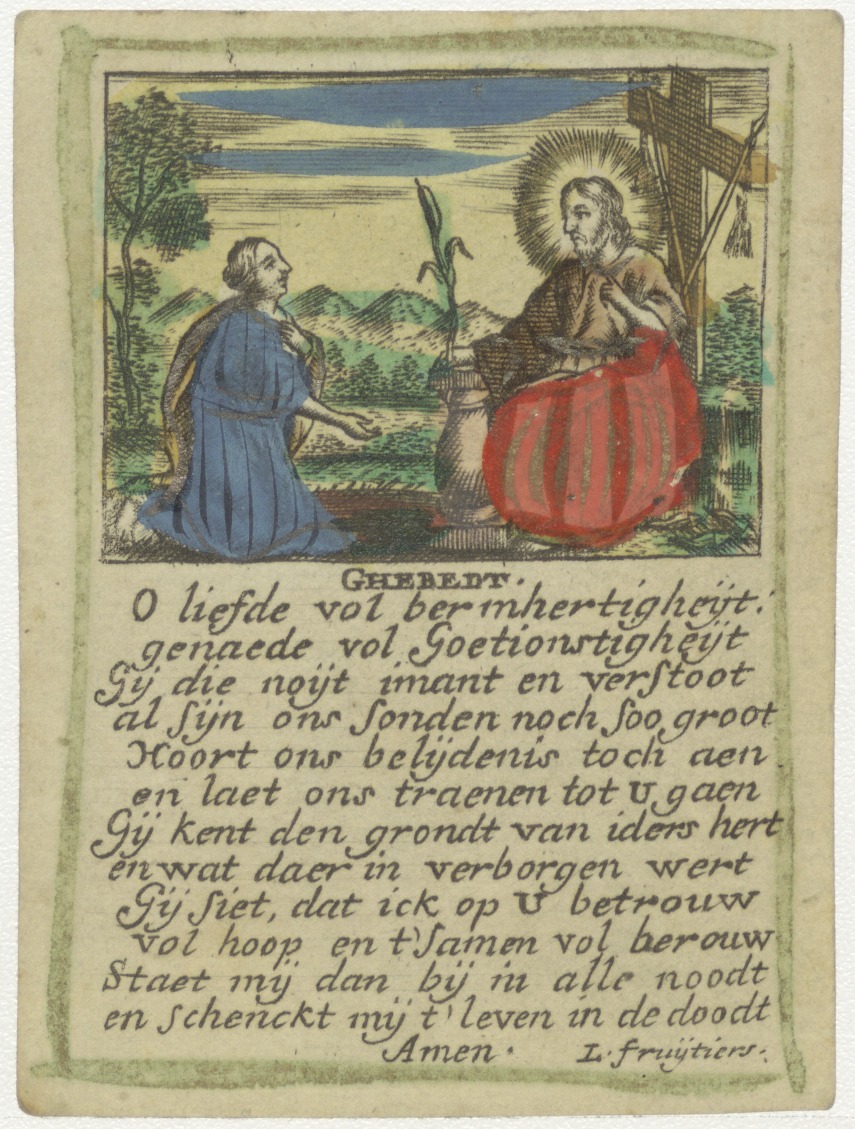 GHEBEDT.
O liefde vol bermhertigheijt.
genaede vol Goetionstigheijt
Gij die noijt imant en verstoot
al sijn ons sonden noch soo groot
Hoort ons belijdenis toch aen
en laet ons traenen tot U gaen
Gij kent den grondt van iders hert
en wat daer in verborgen wert
Gij siet, dat ick op U betrouw
vol hoop en t'samen vol berouw
Staet mij dan bij in alle noodt
en schenckt mij t'leven in de doodt
Amen.
L. fruijtiers.